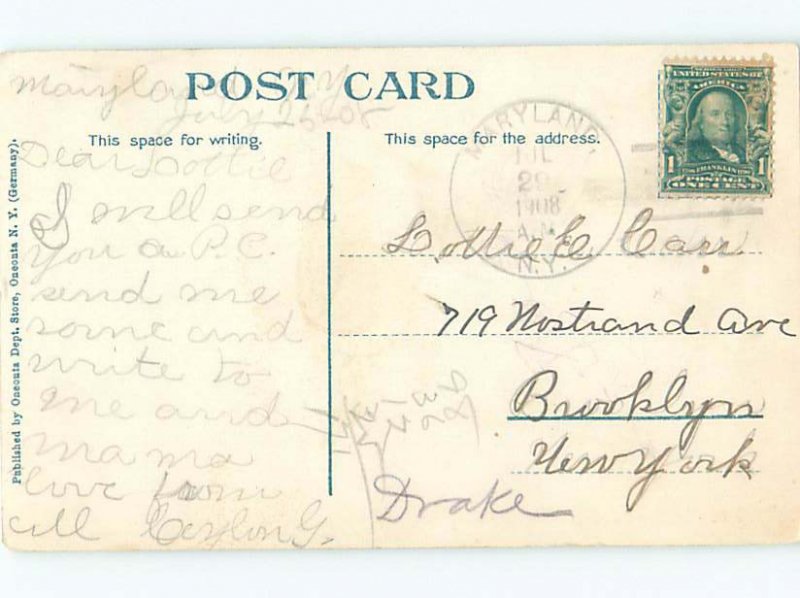 POST CARD
This space for writing.
This space for the address.
Published by Oneonta Dept. Store, Oneonta N. Y. (Germany).
Maryland N Y
July 28 08
Dear Lottie
I will send
you a P. C.
send me
some and
write to
me and
mama
love from
all Ceylon G.
Drake
MARYLAND
JUL
29
1908
A.M.
N.Y.
UNITED STATES OF
AMERICA
1 FRANKLIN 1
POSTAGE
ONE CENT
Lottie E Carr
719 Nostrand Ave
Brooklyn
New York